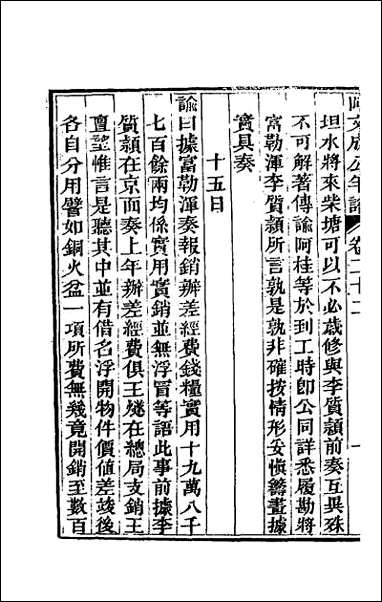 阿文成公年譜 卷二十二
坦水將來柴塘可以不必歲修與李質頴前奏互異殊
不可解著傳諭阿桂等於到工時卽公同詳悉履勘將
富勒渾李質頴所言孰是孰非確按情形妥愼籌畫據
實具奏
十五日
諭曰據富勒渾奏報銷辦差經費錢糧實用十九萬八千
七百餘兩均係實用實銷並無浮冒等語此事前據李
質頴在京面奏上年辦差經費俱王燧在總局支銷王
亶望惟言是聽其中並有借名浮開物件價値差竣後
各自分用譬如銅火盆一項所費無幾竟開銷至數百